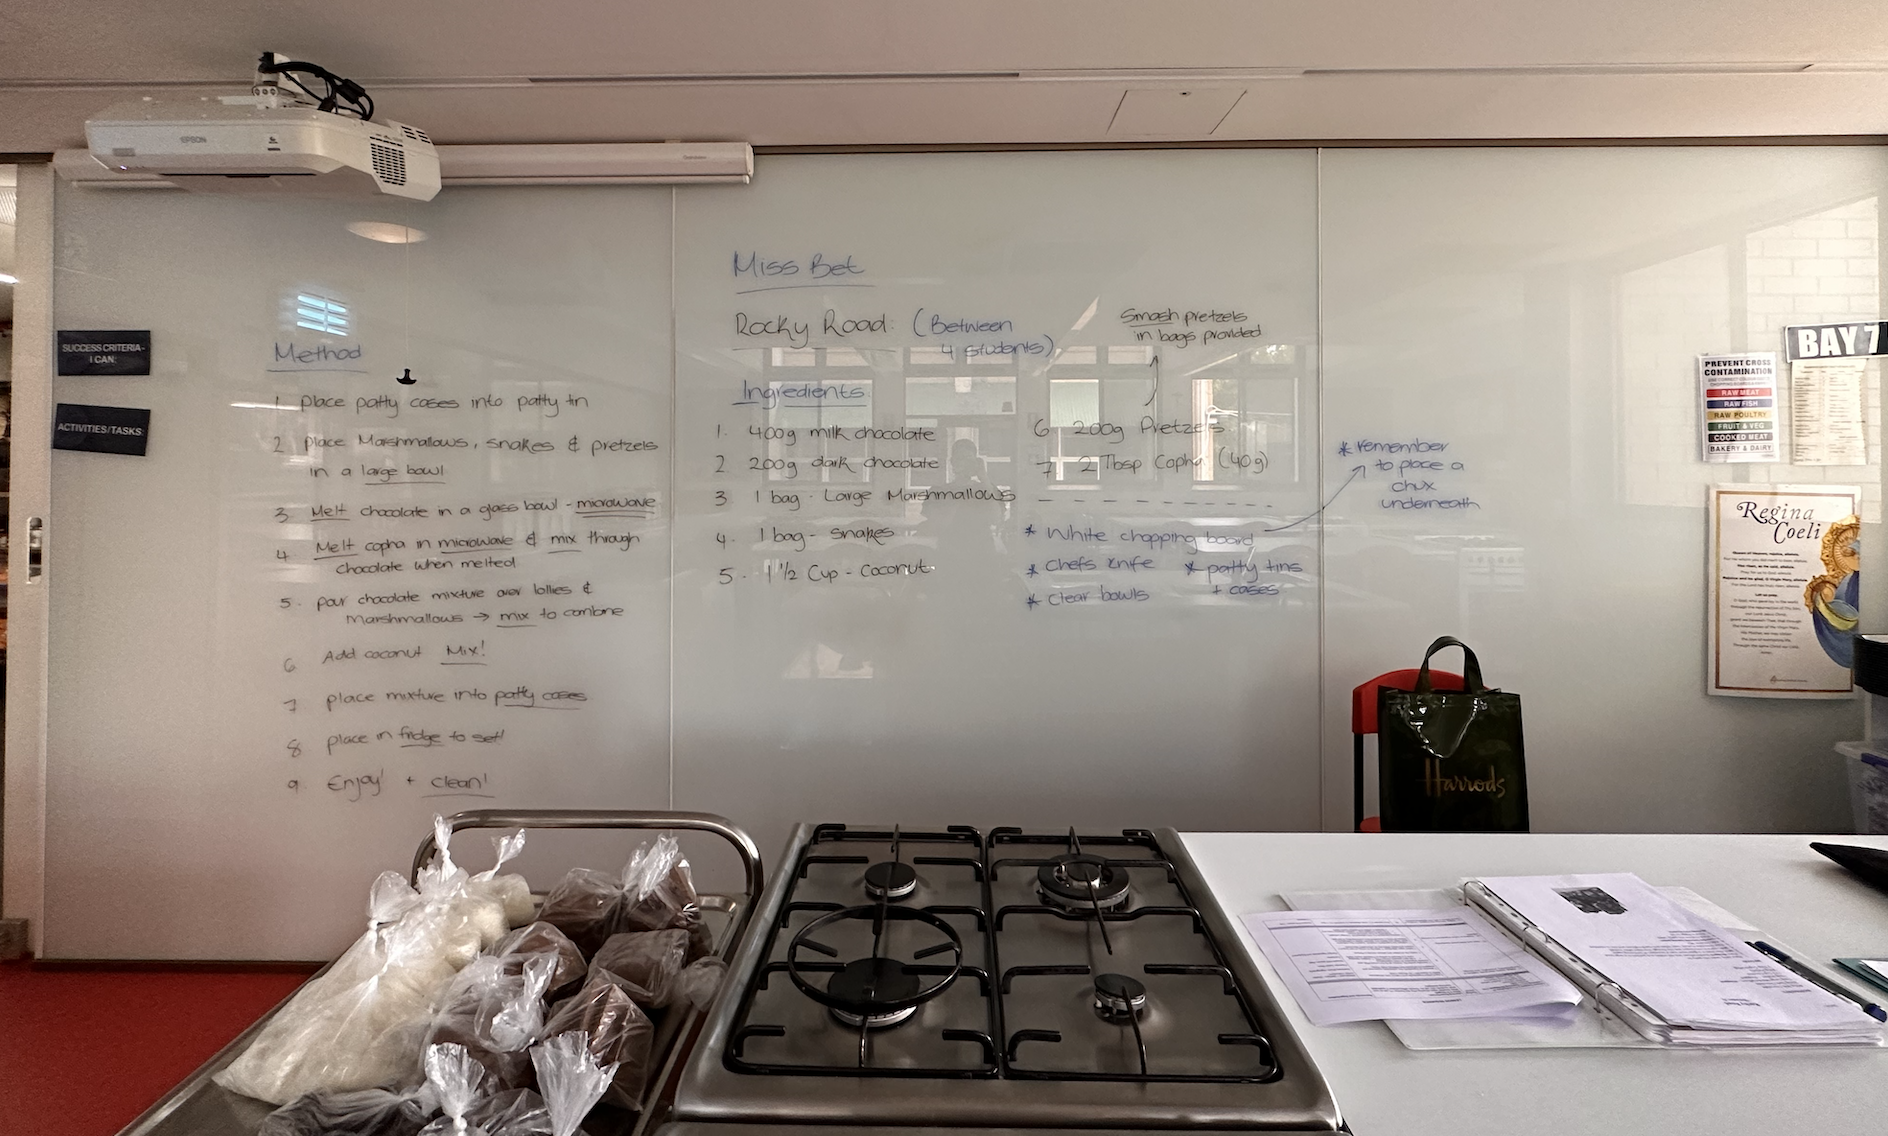 EPSON
SUCCESS CRITERIA-
I CAN:
ACTIVITIES/TASKS:
Method
1 place patty cases into patty tin
2 place Marshmallows, snakes & pretzels
in a large bowl
3 Melt chocolate in a glass bowl - microwave
4. Melt copha in microwave & mix through
chocolate when melted
5. pour chocolate mixture over lollies &
Marshmallows → mix to combine
6 Add coconut Mix!
7 place mixture into patty cases
8 place in fridge to set!
9 Enjoy! + clean!
Miss Bet
Rocky Road: (Between
4 students)
Ingredients
1. 400g milk chocolate
2 200g dark chocolate
3 1 bag - Large Marshmallows
4. 1 bag - snakes
5. 1 1/2 Cup - Coconut
Smash pretzels
in bags provided
6 200g Pretzels
7 2 Tbsp Copha (40g)
* White chopping board
* Chefs knife * patty tins
+ cases
* Clear bowls
* remember
to place a
chux
underneath
BAY 7
PREVENT CROSS
CONTAMINATION
RAW MEAT
RAW FISH
RAW POULTRY
FRUIT & VEG
COOKED MEAT
BAKERY & DAIRY
Regina
Coeli
Harrods